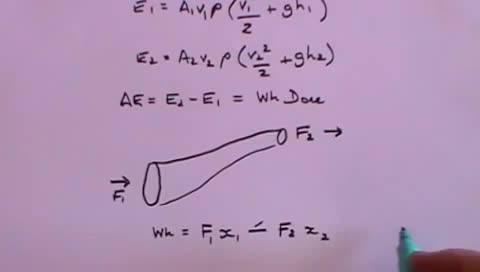 E₁ = A₁v₁ρ (v₁/2 + gh₁)
E₂ = A₂v₂ρ (v₂²/2 + gh₂)
ΔE = E₂ − E₁ = Wh Done
F₂ →
→ F₁
Wh = F₁ x₁ − F₂ x₂